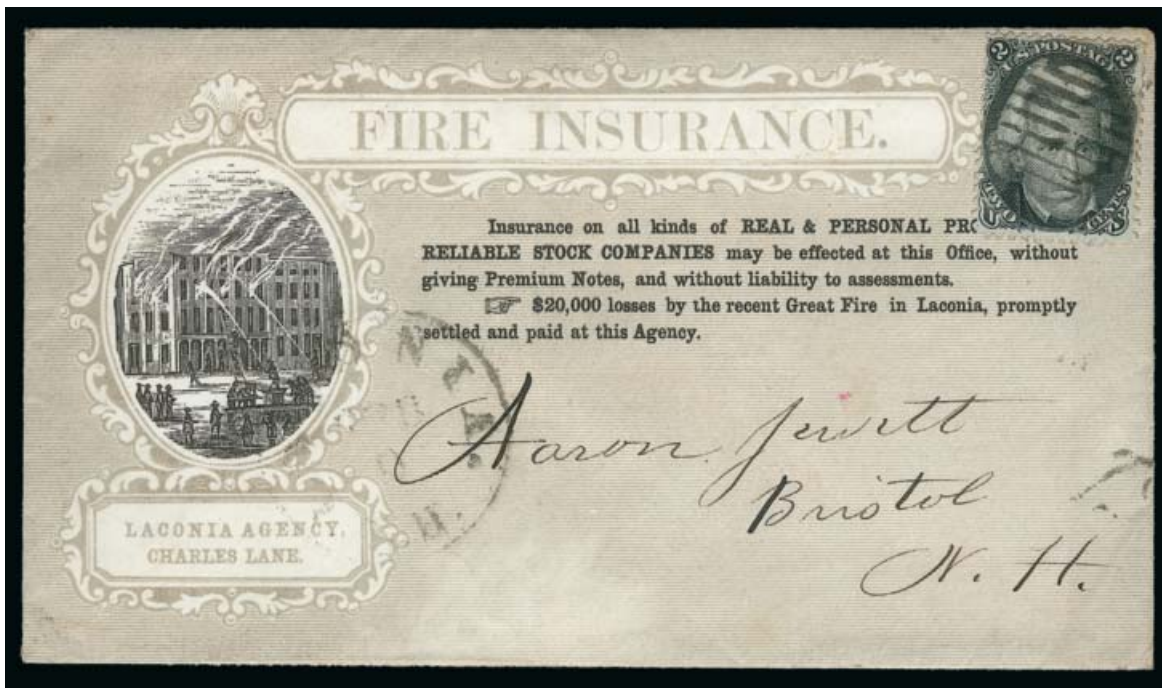 FIRE INSURANCE.
2 U.S. POSTAGE 2
Insurance on all kinds of REAL & PERSONAL
RELIABLE STOCK COMPANIES may be effected at this Office, without
giving Premium Notes, and without liability to assessments.
☞ $20,000 losses by the recent Great Fire in Laconia, promptly
settled and paid at this Agency.
Aaron Jewett
Bristol
N. H.
LACONIA AGENCY,
CHARLES LANE.